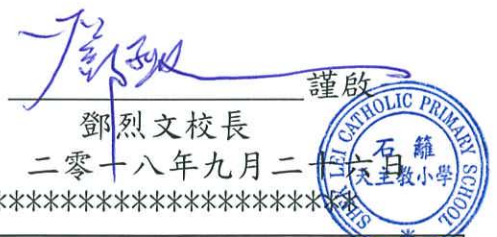 謹啟
鄧烈文校長
二零一八年九月二十六日
SHEK LEI CATHOLIC PRIMARY SCHOOL
石籬
天主教小學
*********************